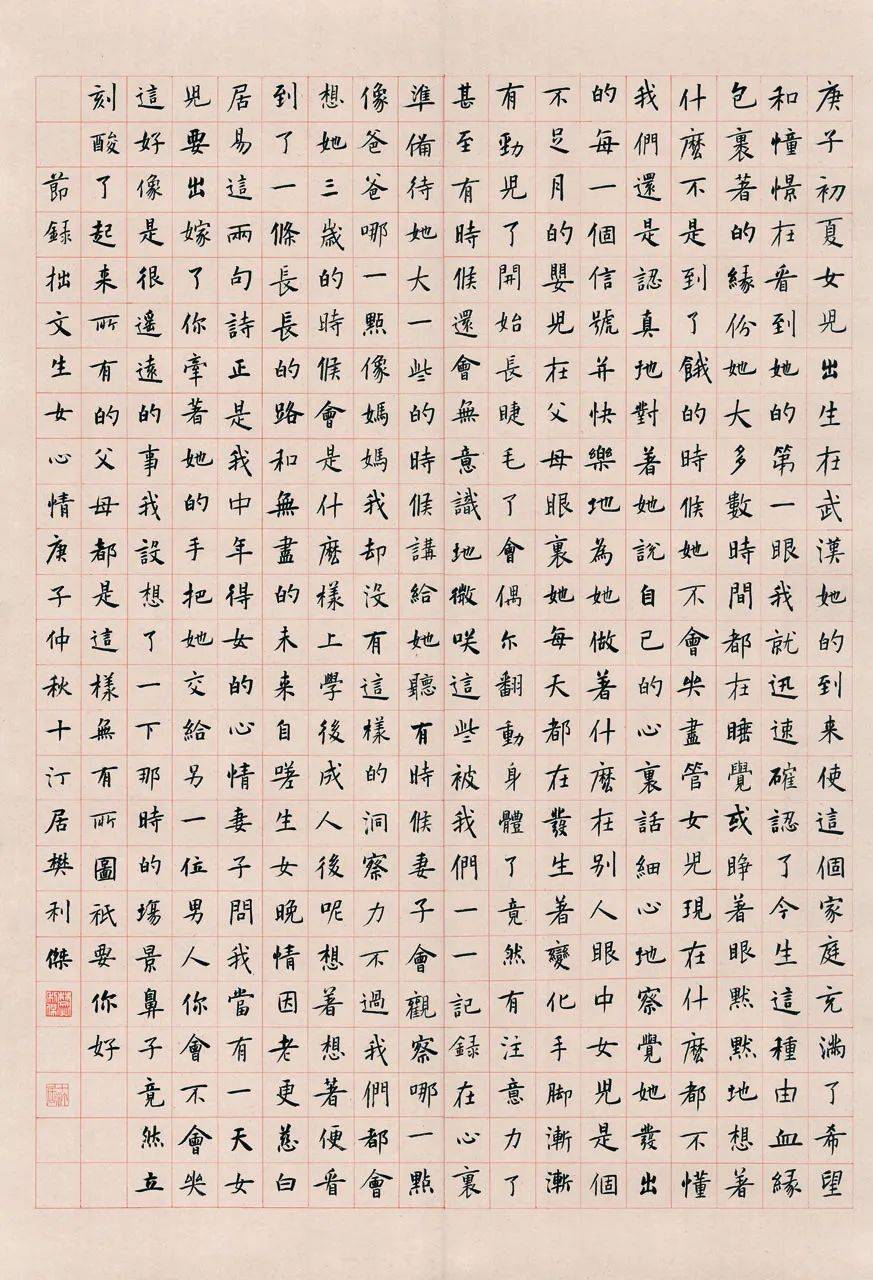 庚子初夏女兒出生在武漢她的到来使這個家庭充滿了希望
和憧憬在看到她的第一眼我就迅速確認了今生這種由血緣
包裹著的緣份她大多數時間都在睡覺或睁著眼默默地想著
什麼不是到了餓的時候她不會哭盡管女兒現在什麼都不懂
我們還是認真地對著她說自己的心裏話細心地察覺她發出
的每一個信號并快樂地為她做著什麼在别人眼中女兒是個
不足月的嬰兒在父母眼裏她每天都在發生著變化手脚漸漸
有勁兒了開始長睫毛了會偶尔翻動身體了竟然有注意力了
甚至有時候還會無意識地微咲這些被我們一一記録在心裏
準備待她大一些的時候講給她聽有時候妻子會觀察哪一點
像爸爸哪一點像媽媽我却沒有這樣的洞察力不過我們都會
想她三歲的時候會是什麼樣上學後成人後呢想著想著便看
到了一條長長的路和無盡的未来自嗟生女晚情因老更慈白
居易這兩句詩正是我中年得女的心情妻子問我當有一天女
兒要出嫁了你牽著她的手把她交給另一位男人你會不會哭
這好像是很遥遠的事我設想了一下那時的場景鼻子竟然立
刻酸了起来所有的父母都是這樣無有所圖祇要你好
節録拙文生女心情庚子仲秋十汀居樊利傑